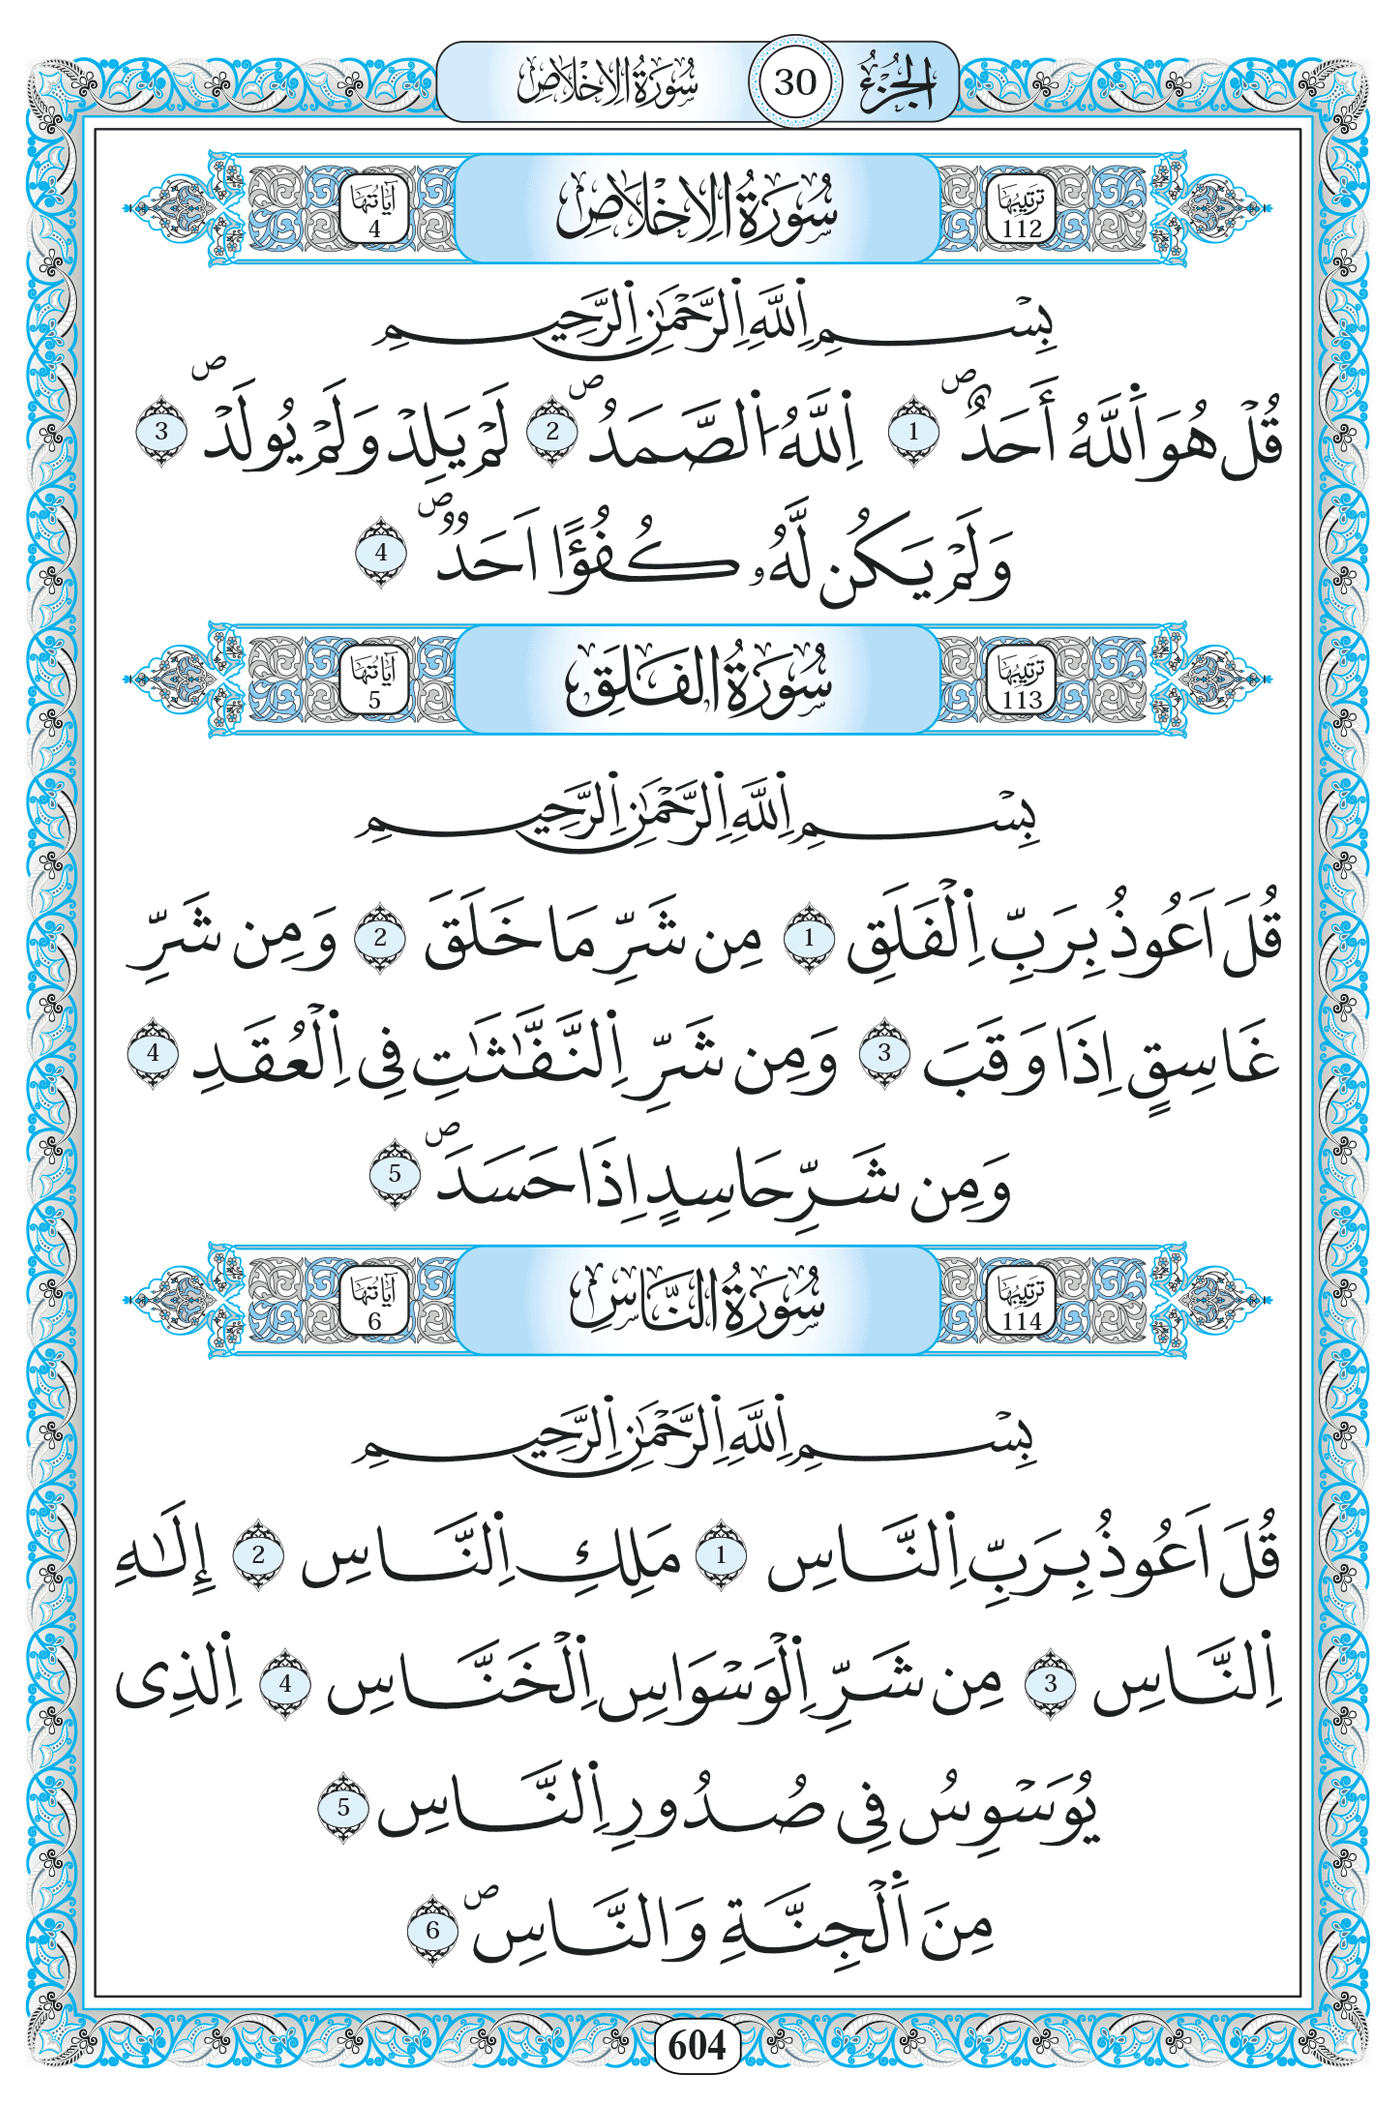 الجزء 30 سورة الإخلاص
ترتيبها 112 سُورَةُ الإِخْلَاصِ آيَاتُهَا 4
بِسْمِ اِللَّهِ اِلرَّحْمَٰنِ اِلرَّحِيمِ
قُلْ هُوَ اَللَّهُ أَحَدٌ ۖ 1 اِللَّهُ اُلصَّمَدُ ۖ 2 لَمْ يَلِدْ وَلَمْ يُولَدْ ۖ 3
وَلَمْ يَكُن لَّهُۥ كُفُؤًا اَحَدٌ ۖ 4
ترتيبها 113 سُورَةُ الفَلَقِ آيَاتُهَا 5
بِسْمِ اِللَّهِ اِلرَّحْمَٰنِ اِلرَّحِيمِ
قُلَ اَعُوذُ بِرَبِّ اِلْفَلَقِ 1 مِن شَرِّ مَا خَلَقَ 2 وَمِن شَرِّ
غَاسِقٍ اِذَا وَقَبَ 3 وَمِن شَرِّ اِلنَّفَّٰثَٰتِ فِى اِلْعُقَدِ 4
وَمِن شَرِّ حَاسِدٍ اِذَا حَسَدَ ۖ 5
ترتيبها 114 سُورَةُ النَّاسِ آيَاتُهَا 6
بِسْمِ اِللَّهِ اِلرَّحْمَٰنِ اِلرَّحِيمِ
قُلَ اَعُوذُ بِرَبِّ اِلنَّاسِ 1 مَلِكِ اِلنَّاسِ 2 إِلَٰهِ
اِلنَّاسِ 3 مِن شَرِّ اِلْوَسْوَاسِ اِلْخَنَّاسِ 4 اِلذِى
يُوَسْوِسُ فِى صُدُورِ اِلنَّاسِ 5
مِنَ اَلْجِنَّةِ وَالنَّاسِ ۖ 6
604